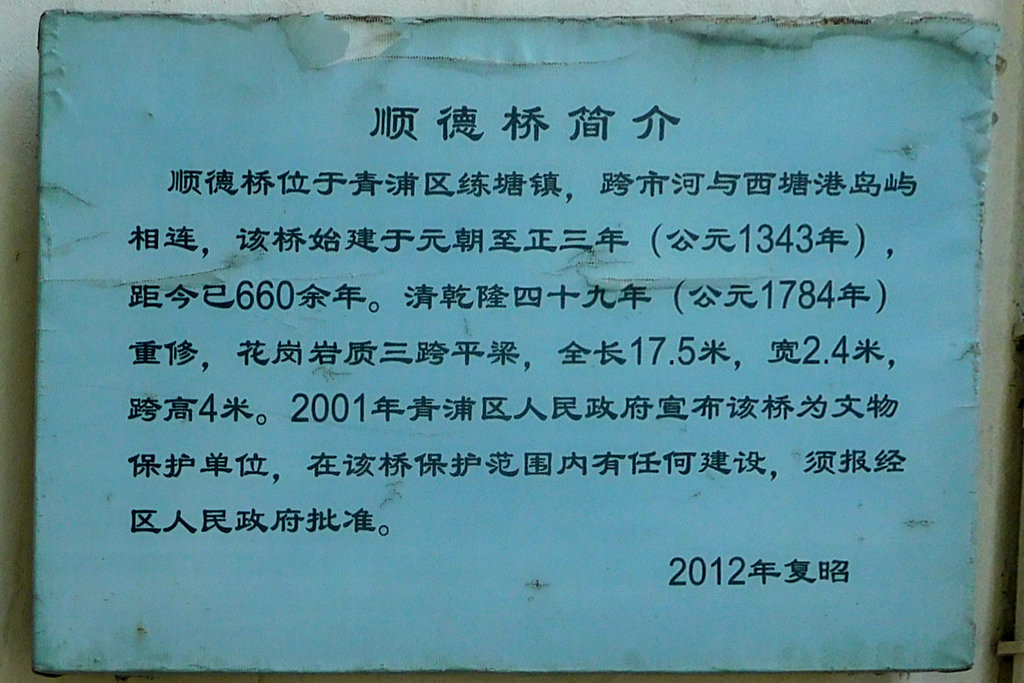 顺德桥简介
顺德桥位于青浦区练塘镇，跨市河与西塘港岛屿
相连，该桥始建于元朝至正三年（公元1343年），
距今已660余年。清乾隆四十九年（公元1784年）
重修，花岗岩质三跨平梁，全长17.5米，宽2.4米，
跨高4米。2001年青浦区人民政府宣布该桥为文物
保护单位，在该桥保护范围内有任何建设，须报经
区人民政府批准。
2012年复昭